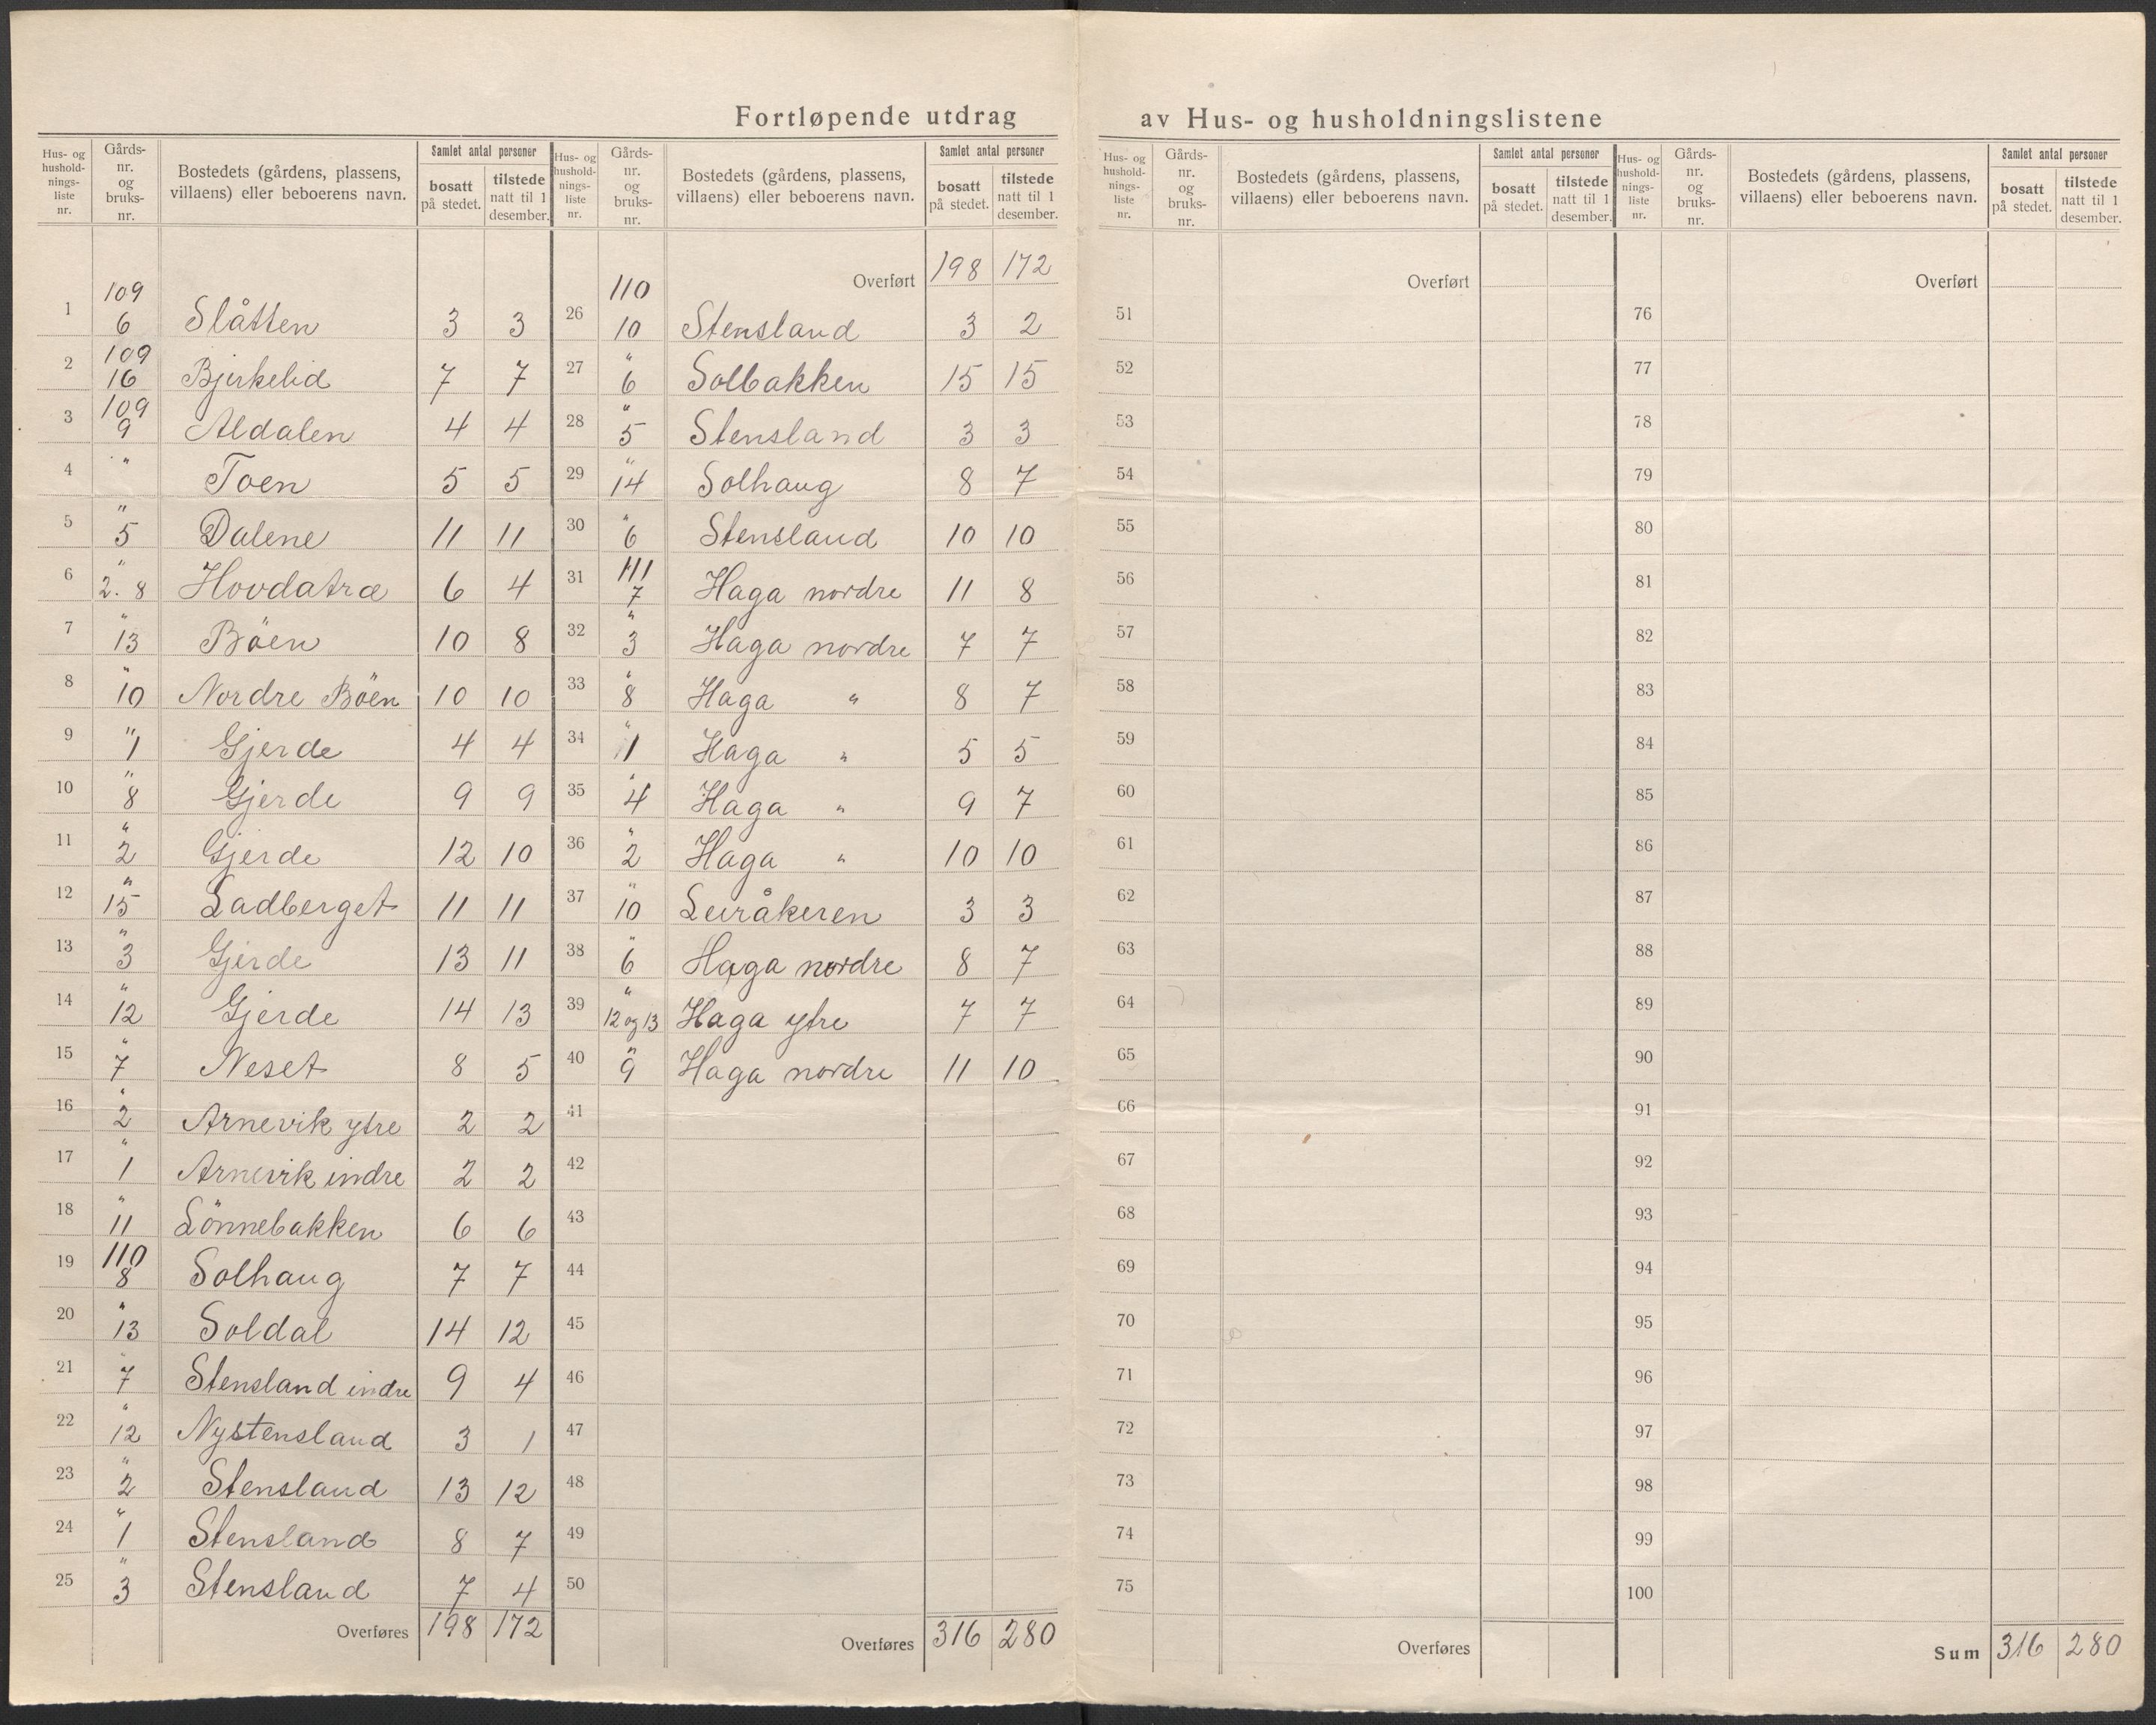 Fortløpende utdrag av Hus- og husholdningslistene
Hus- og hushold-nings-liste nr. | Gårds-nr. og bruks-nr. | Bostedets (gårdens, plassens, villaens) eller beboerens navn. | Samlet antal personer | bosatt på stedet. | tilstede natt til 1 desember.
1 | 109 6 | Slåtten | 3 | 3
2 | 109 16 | Bjerkelid | 7 | 7
3 | 109 9 | Aldalen | 4 | 4
4 | " | Toen | 5 | 5
5 | " 5 | Dalene | 11 | 11
6 | " 2. 8 | Hovdatræ | 6 | 4
7 | " 13 | Böen | 10 | 8
8 | " 10 | Nordre Böen | 10 | 10
9 | " 1 | Gjerde | 4 | 4
10 | " 8 | Gjerde | 9 | 9
11 | " 2 | Gjerde | 12 | 10
12 | " 15 | Ladberget | 11 | 11
13 | " 3 | Gjerde | 13 | 11
14 | " 12 | Gjerde | 14 | 13
15 | " 7 | Neset | 8 | 5
16 | " 2 | Arnevik ytre | 2 | 2
17 | " 1 | Arnevik indre | 2 | 2
18 | " 11 | Lönnebakken | 6 | 6
19 | 110 8 | Solhaug | 7 | 7
20 | " 13 | Soldal | 14 | 12
21 | " 7 | Stensland indre | 9 | 4
22 | " 12 | Nystensland | 3 | 1
23 | " 2 | Stensland | 13 | 12
24 | " 1 | Stensland | 8 | 7
25 | " 3 | Stensland | 7 | 4
Overføres 198 | 172
Hus- og hushold-nings-liste nr. | Gårds-nr. og bruks-nr. | Bostedets (gårdens, plassens, villaens) eller beboerens navn. | Samlet antal personer | bosatt på stedet. | tilstede natt til 1 desember.
Overført 198 | 172
26 | 110 10 | Stensland | 3 | 2
27 | " 6 | Solbakken | 15 | 15
28 | " 5 | Stensland | 3 | 3
29 | " 14 | Solhaug | 8 | 7
30 | " 6 | Stensland | 10 | 10
31 | 111 7 | Haga nordre | 11 | 8
32 | " 3 | Haga nordre | 7 | 7
33 | " 8 | Haga " | 8 | 7
34 | " 1 | Haga " | 5 | 5
35 | " 4 | Haga " | 9 | 7
36 | " 2 | Haga " | 10 | 10
37 | " 10 | Leiråkeren | 3 | 3
38 | " 6 | Haga nordre | 8 | 7
39 | " 12 og 13 | Haga ytre | 7 | 7
40 | " 9 | Haga nordre | 11 | 10
41
42
43
44
45
46
47
48
49
50
Overføres 316 | 280
Hus- og hushold-nings-liste nr. | Gårds-nr. og bruks-nr. | Bostedets (gårdens, plassens, villaens) eller beboerens navn. | Samlet antal personer | bosatt på stedet. | tilstede natt til 1 desember.
Overført
51
52
53
54
55
56
57
58
59
60
61
62
63
64
65
66
67
68
69
70
71
72
73
74
75
Overføres
Hus- og hushold-nings-liste nr. | Gårds-nr. og bruks-nr. | Bostedets (gårdens, plassens, villaens) eller beboerens navn. | Samlet antal personer | bosatt på stedet. | tilstede natt til 1 desember.
Overført
76
77
78
79
80
81
82
83
84
85
86
87
88
89
90
91
92
93
94
95
96
97
98
99
100
Sum 316 | 280